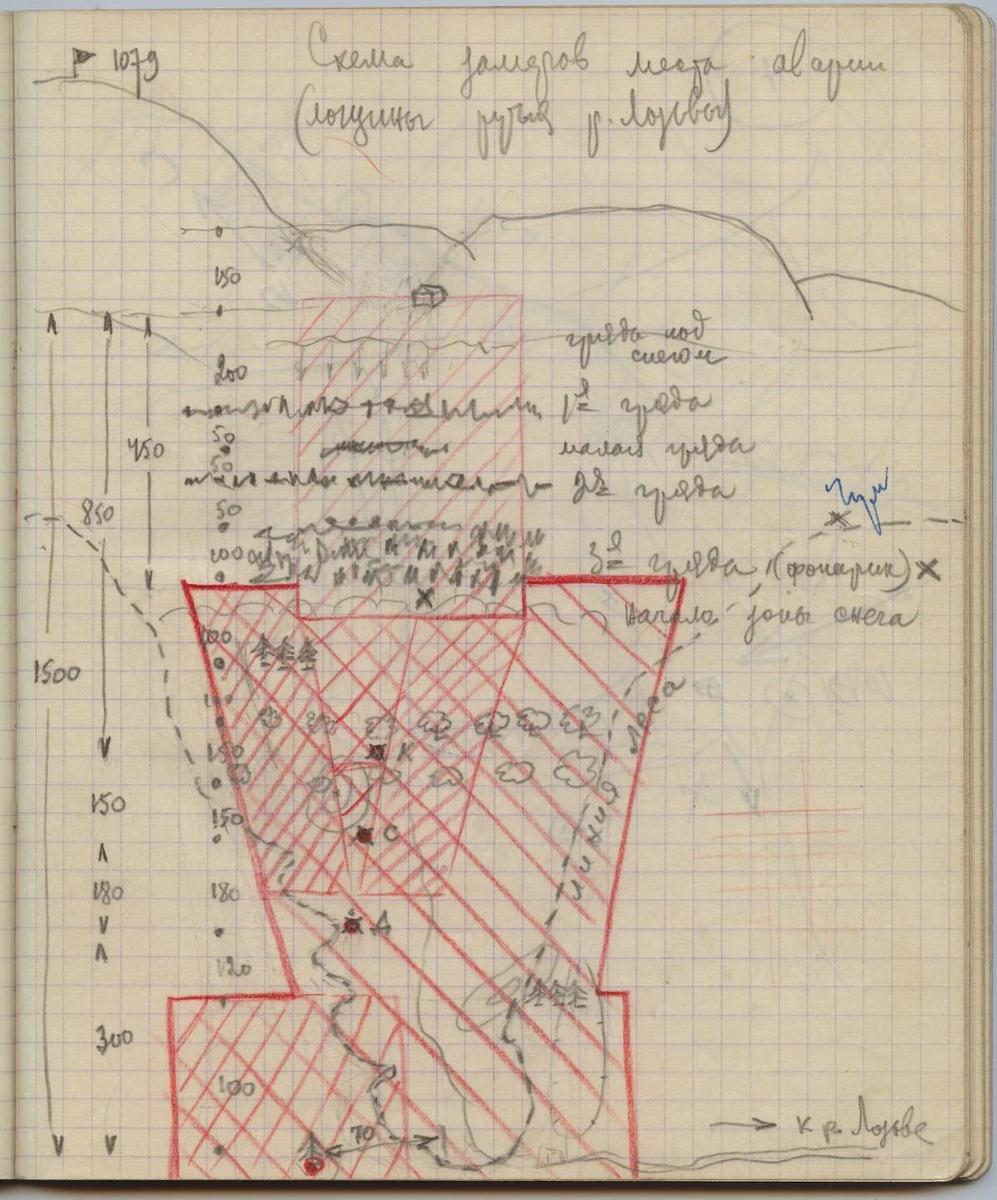 1079
Схема замеров места аварии
(лощины ручья р. Лозьвы)
150
гряда под
снегом
200
1я гряда
50
малая гряда
450
50
2я гряда
50
850
Чум
100
3я гряда (фонарик)
начало зоны снега
100
1500
100
К
150
150
150
С
линия леса
180
180
Д
120
300
100
70
к р. Лозьве